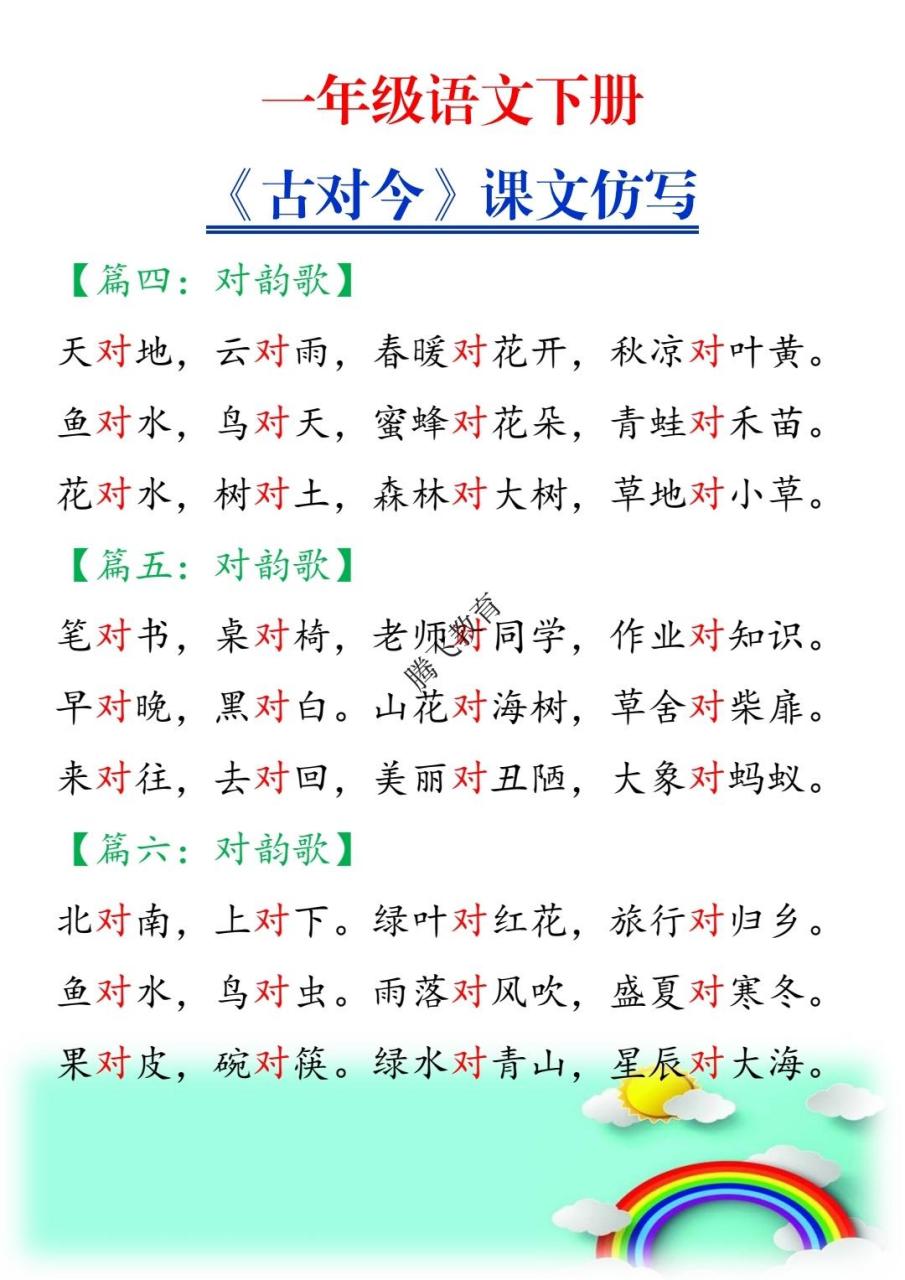 一年级语文下册
《古对今》课文仿写
【篇四：对韵歌】
天对地，云对雨，春暖对花开，秋凉对叶黄。
鱼对水，鸟对天，蜜蜂对花朵，青蛙对禾苗。
花对水，树对土，森林对大树，草地对小草。
【篇五：对韵歌】
笔对书，桌对椅，老师对同学，作业对知识。
腾飞教育
早对晚，黑对白。山花对海树，草舍对柴扉。
来对往，去对回，美丽对丑陋，大象对蚂蚁。
【篇六：对韵歌】
北对南，上对下。绿叶对红花，旅行对归乡。
鱼对水，鸟对虫。雨落对风吹，盛夏对寒冬。
果对皮，碗对筷。绿水对青山，星辰对大海。